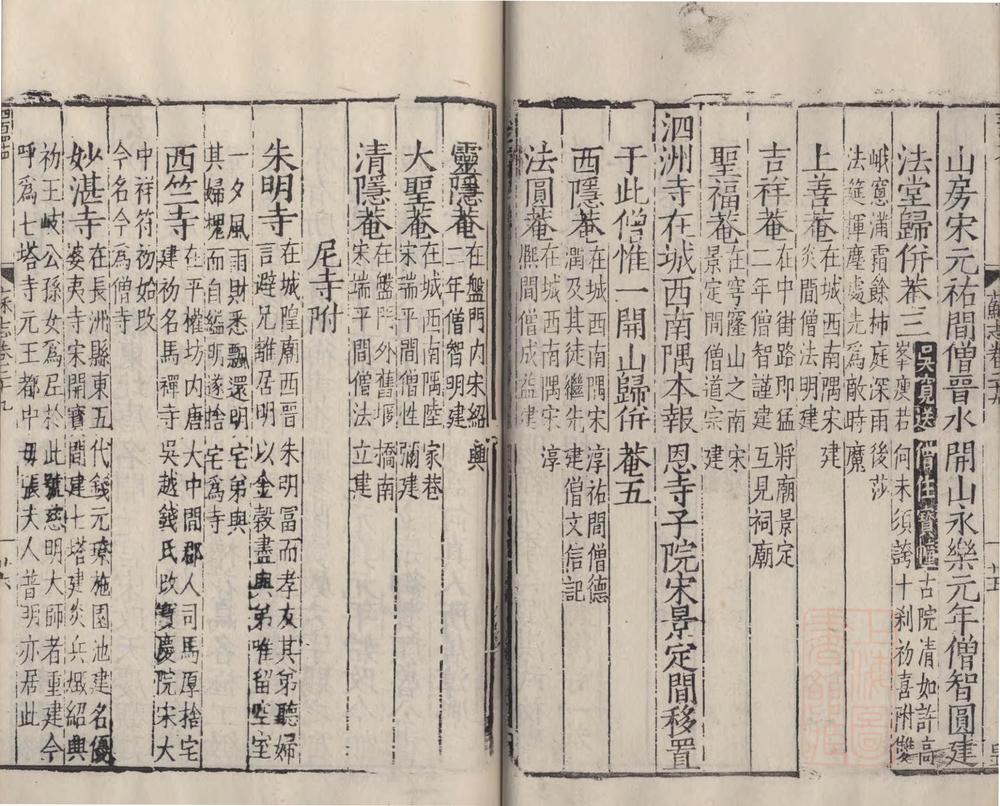 山房宋元祐間僧晉水開山永樂元年僧智圓建
法堂歸併菴三 吳寬送僧住寶幢 古院清如許高
峯廋若何未須誇十剎初喜附雙
峨窻滿霜餘柿庭深雨後莎
法筵揮麈處先爲敵時魔
上善菴 在城西南隅宋建
炎間僧法明建
吉祥菴 在中街路即猛將廟景定
二年僧智謹建互見祠廟
聖福菴 在穹窿山之南宋
景定間僧道宗建
泗洲寺在城西南隅本報恩寺子院宋景定間移置
于此僧惟一開山歸併菴五
西隱菴 在城西南隅宋淳祐間僧德
潤及其徒繼先建僧文信記
法圓菴 在城西南隅宋淳
熈間僧成益建
靈隱菴 在盤門内宋紹興
二年僧智明建
大聖菴 在城西南隅陸家巷
宋端平間僧性彌建
清隱菴 在盤門外舊橋南
宋端平間僧法立建
尼寺附
朱明寺 在城隍廟西晉朱明冨而孝友其弟聽婦
言避兄離居明以金穀盡與弟唯留空室
一夕風雨財悉飄還明宅弟與
其婦愧而自縊明遂捨宅爲寺
西竺寺 在平權坊内唐大中間郡人司馬厚捨宅
建初名馬禪寺吳越錢氏改寶慶院宋大
中祥符初始改
今名今爲僧寺
妙湛寺 在長洲縣東五代錢元璙施園池建名優
婆夷寺宋開寶間建七塔建炎兵燬紹興
初王岐公孫女爲尼於此號慈明大師者重建今
呼爲七塔寺元王都中母張夫人普明亦居此
廿六